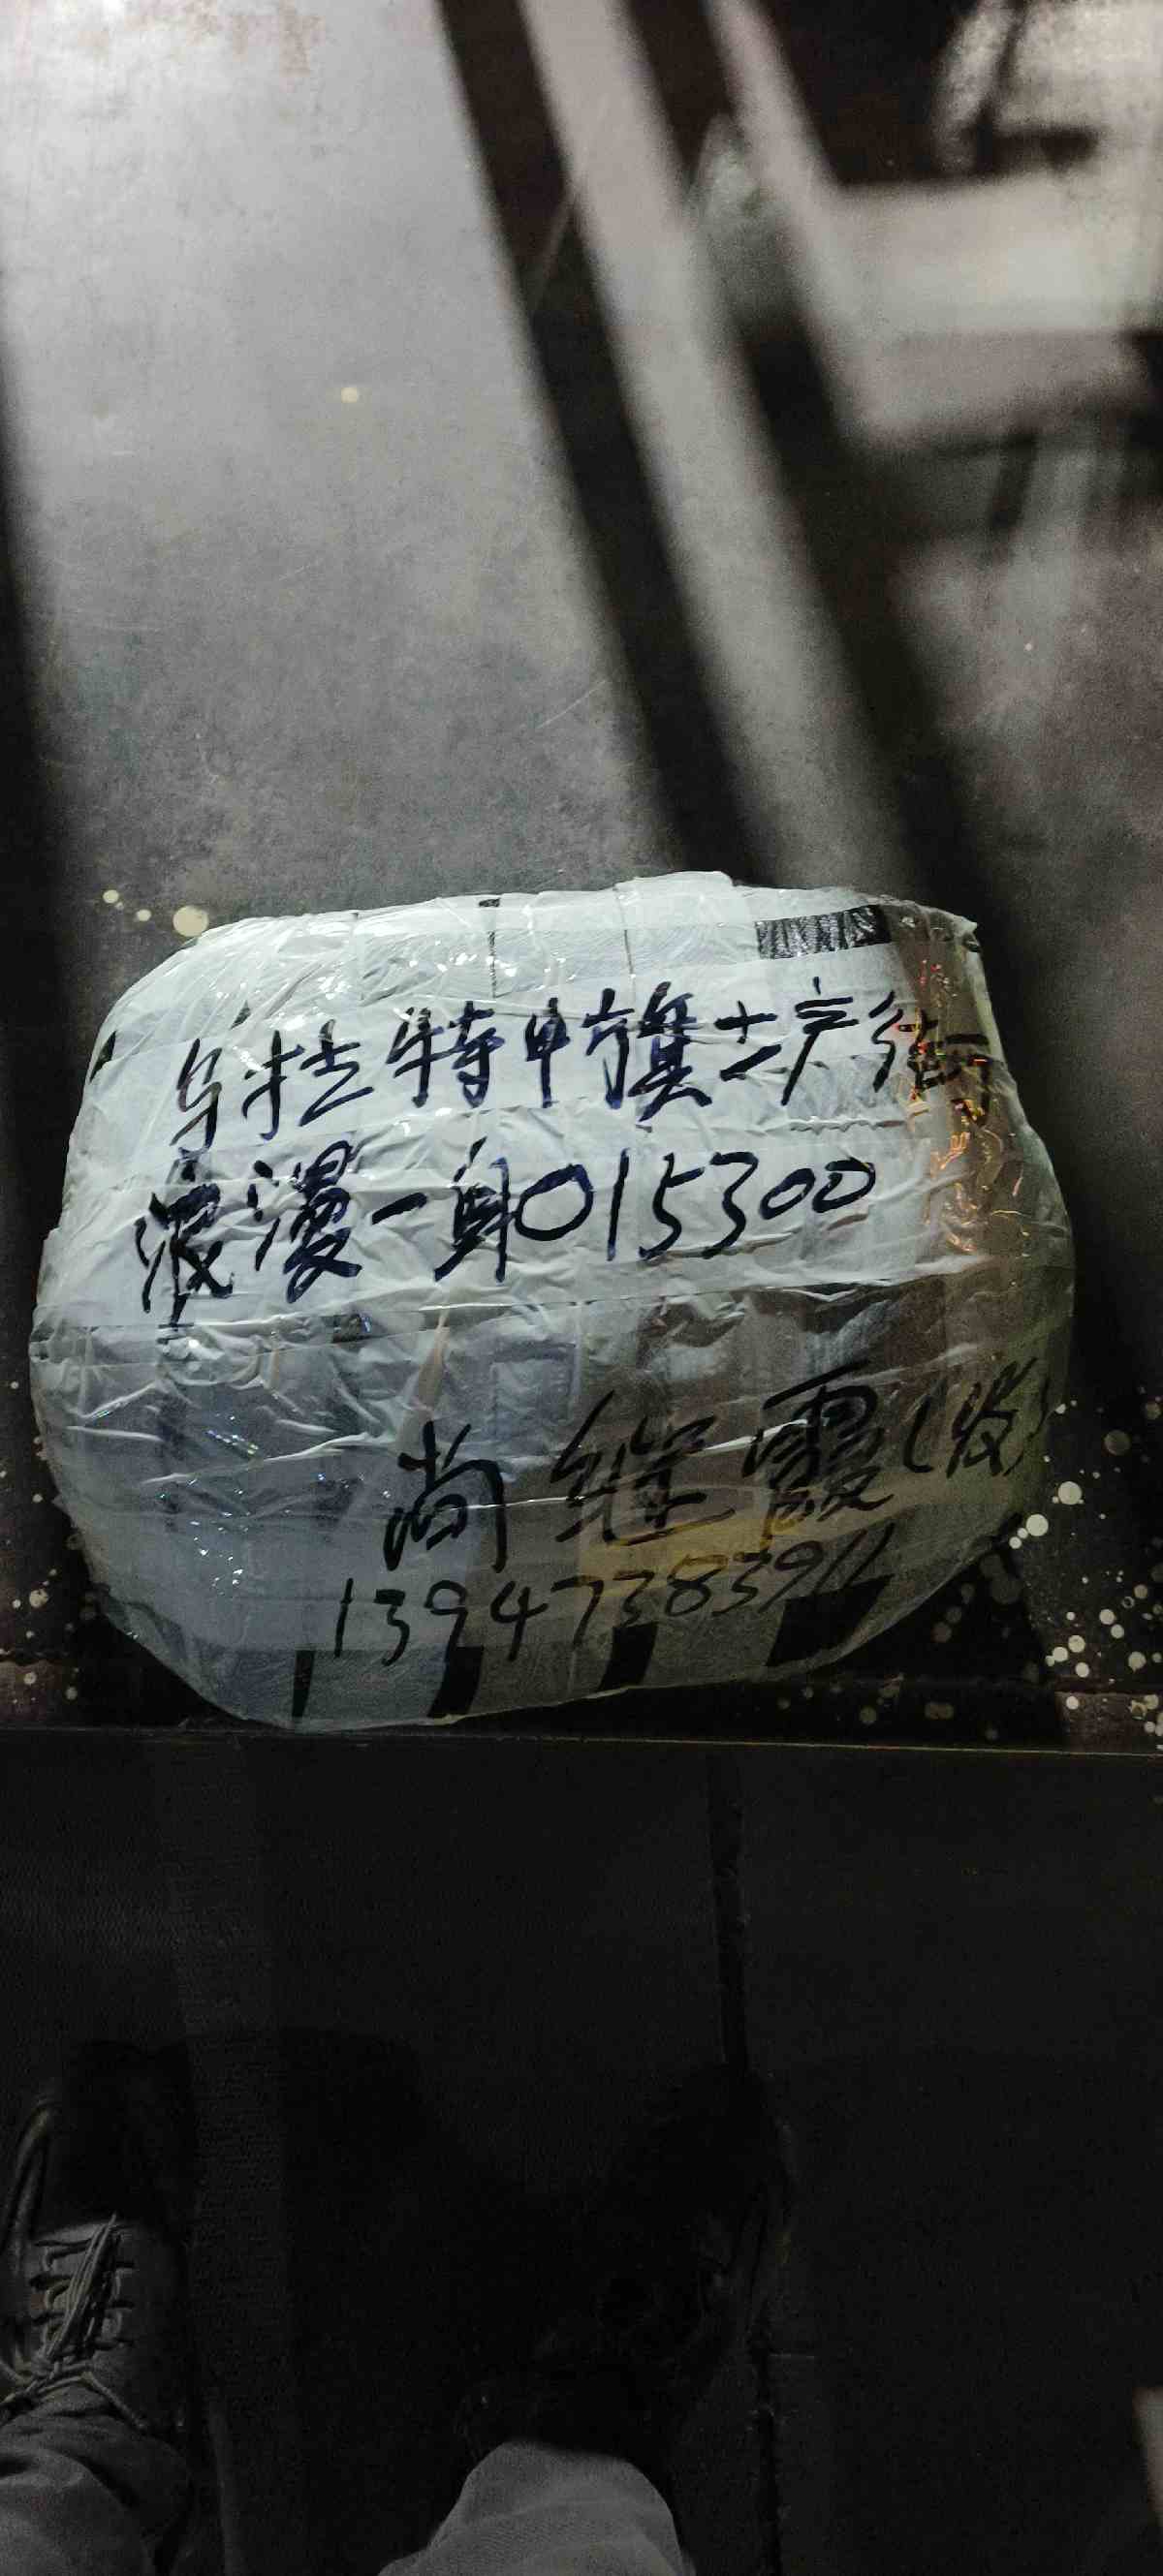 乌拉特中旗土产街
浪漫一身015300
尚继霞(收)
13947383911